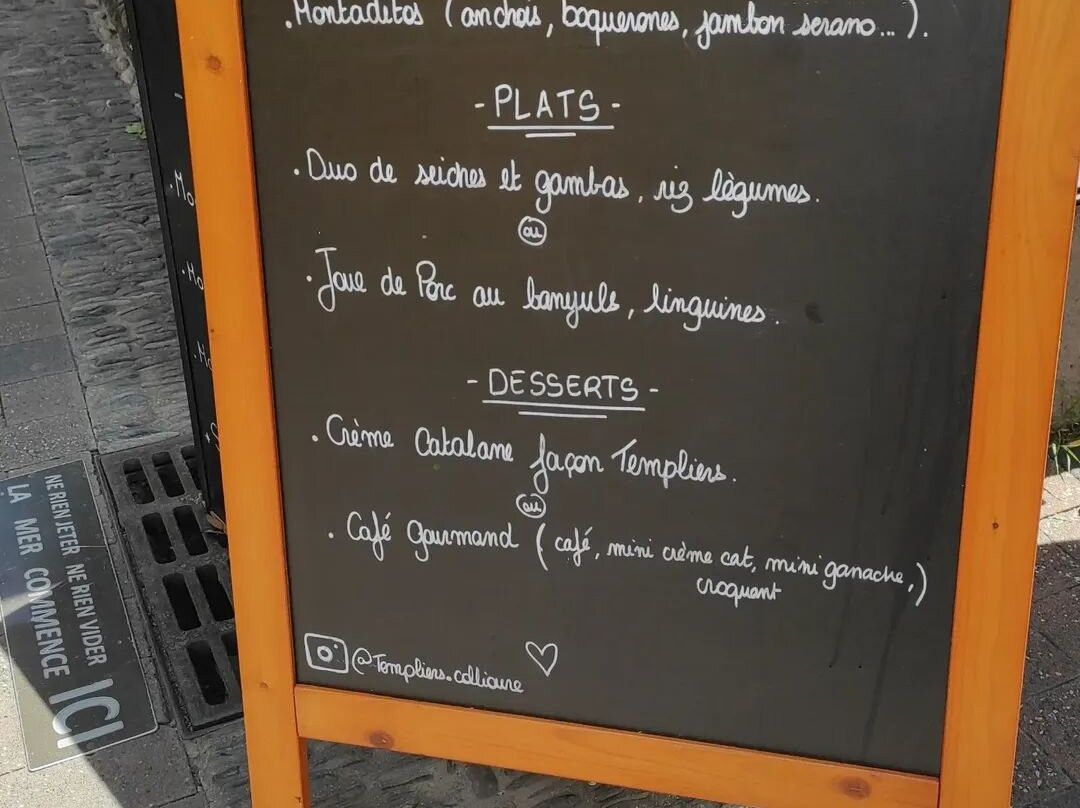 . Montaditos (anchois, boquerones, jambon serano...).
- PLATS -
. Duo de seiches et gambas, riz lègumes.
ou
. Joue de Porc au banyuls, linguines.
- DESSERTS -
. Crème Catalane façon Templiers.
ou
. Café Gourmand (café, mini crème cat, mini ganache,)
croquant
@Templiers.collioure
NE RIEN JETER NE RIEN VIDER
LA MER COMMENCE ICI